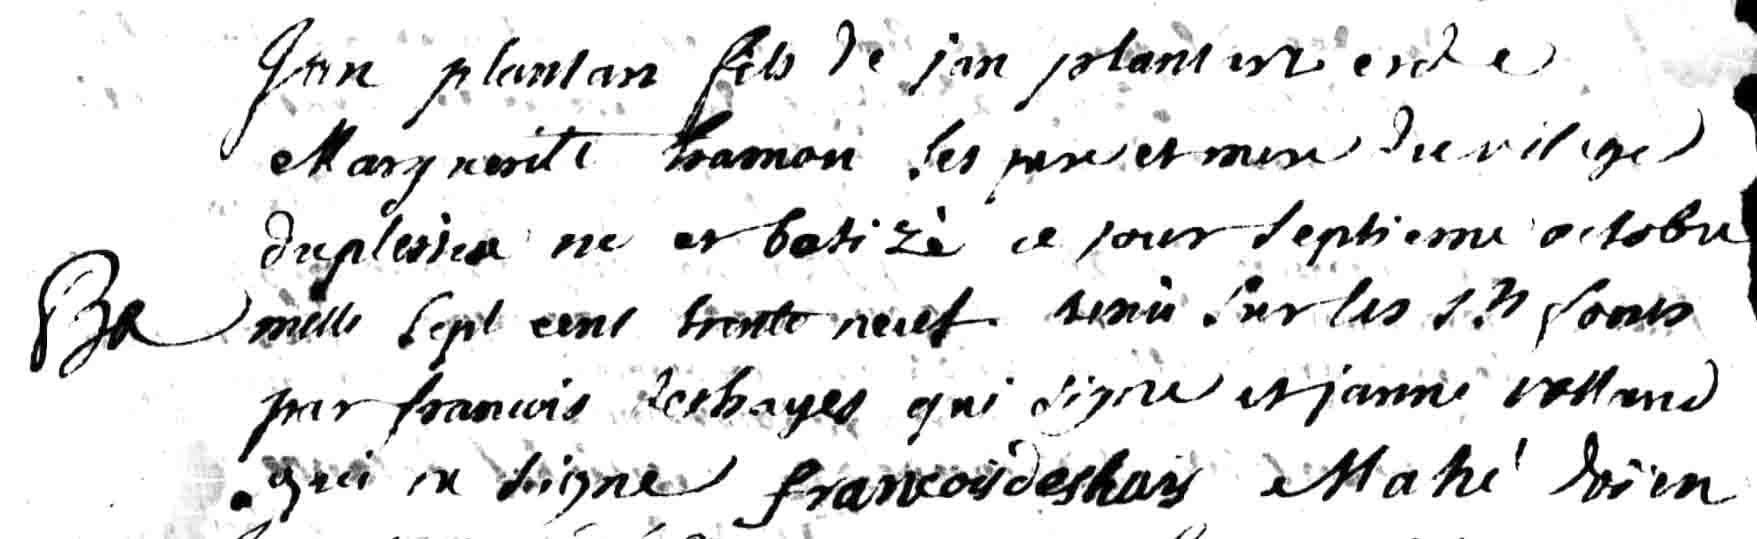 Jan plantart fils de jan plantart et de
Marguerite hamon ses pere et mere du vilage
duplessix ne et batizè ce jour septieme octobre
Ba mille sept cent trente neuf tenu sur les sts fonts
par francois deshayes qui signe et janne rolland
qui ne signe francois deshais Mahé doien